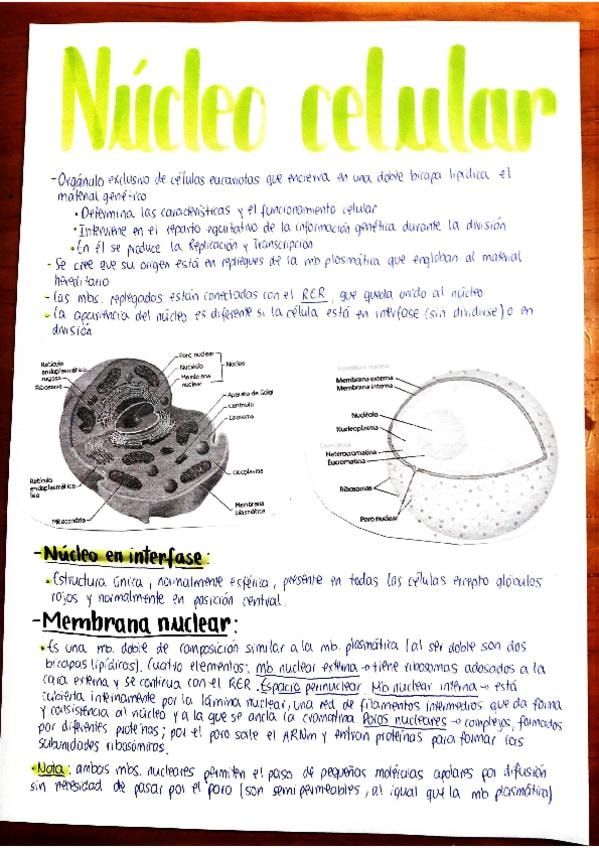 Núcleo celular
- Orgánulo exclusivo de células eucariotas que encierra en una doble bicapa lipídica el
material genético
• Determina las características y el funcionamiento celular
• Interviene en el reparto equitativo de la información genética durante la división
• En él se produce la Replicación y Transcripción
- Se cree que su origen está en repliegues de la mb plasmática que engloban al material
hereditario
- Las mbs. replegadas están conectadas con el RER, que queda unido al núcleo
- La apariencia del núcleo es diferente si la célula está en interfase (sin dividirse) o en
división
Retículo
endoplasmático
rugoso
Ribosoma
Retículo
endoplasmático
liso
Mitocondria
Poro nuclear
Nucléolo
Membrana
nuclear
Núcleo
Aparato de Golgi
Centriolo
Lisosoma
Citoplasma
Membrana
plasmática
Membrana externa
Membrana interna
Nucléolo
Nucleoplasma
Cromatina
Heterocromatina
Eucromatina
Ribosomas
Poro nuclear
- Núcleo en interfase:
• Estructura única, normalmente esférica, presente en todas las células excepto glóbulos
rojos y normalmente en posición central.
- Membrana nuclear:
• Es una mb. doble de composición similar a la mb. plasmática (al ser doble son dos
bicapas lipídicas). Cuatro elementos: mb nuclear externa → tiene ribosomas adosados a la
cara externa y se continua con el RER. Espacio perinuclear. Mb nuclear interna → está
cubierta internamente por la lámina nuclear, una red de filamentos intermedios que da forma
y consistencia al núcleo y a la que se ancla la cromatina. Poros nucleares → complejos, formados
por diferentes proteínas; por el poro sale el ARNm y entran proteínas para formar las
subunidades ribosómicas.
• Nota: ambos mbs. nucleares permiten el paso de pequeñas moléculas apolares por difusión
sin necesidad de pasar por el poro (son semipermeables, al igual que la mb plasmática)